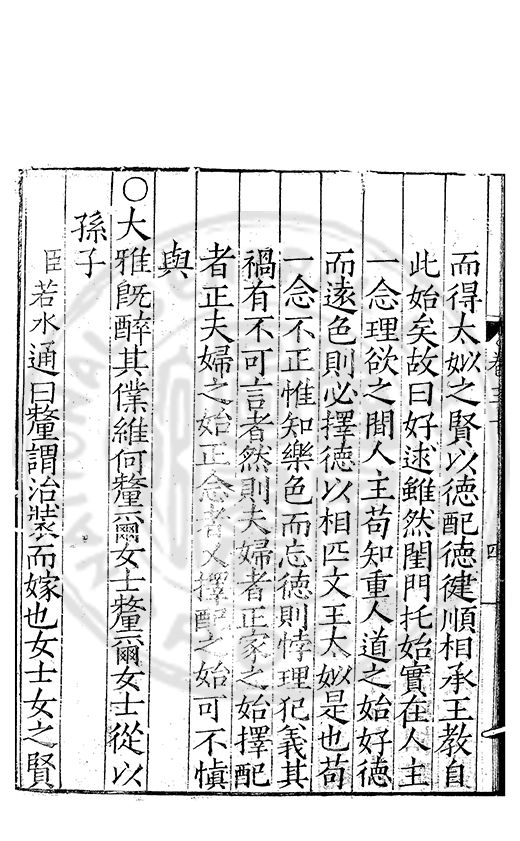 而得太姒之賢以德配德健順相承王教自
此始矣故曰好逑雖然閨門托始實在人主
一念理欲之間人主苟知重人道之始好德
而遠色則必擇德以相匹文王太姒是也苟
一念不正惟知樂色而忘德則悖理犯義其
禍有不可言者然則夫婦者正家之始擇配
者正夫婦之始正念者又擇配之始可不慎
與
○大雅旣醉其僕維何釐爾女士釐爾女士從以
孫子
臣若水通曰釐謂治裝而嫁也女士女之賢